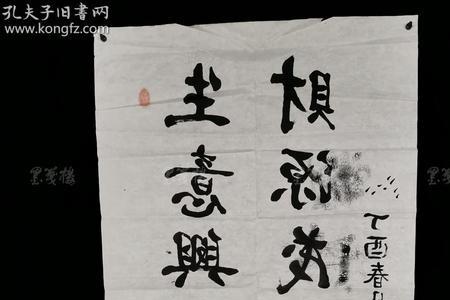 孔夫子旧书网
www.kongfz.com
生意興
財源茂
丁酉春
墨笺楼
墨笺楼